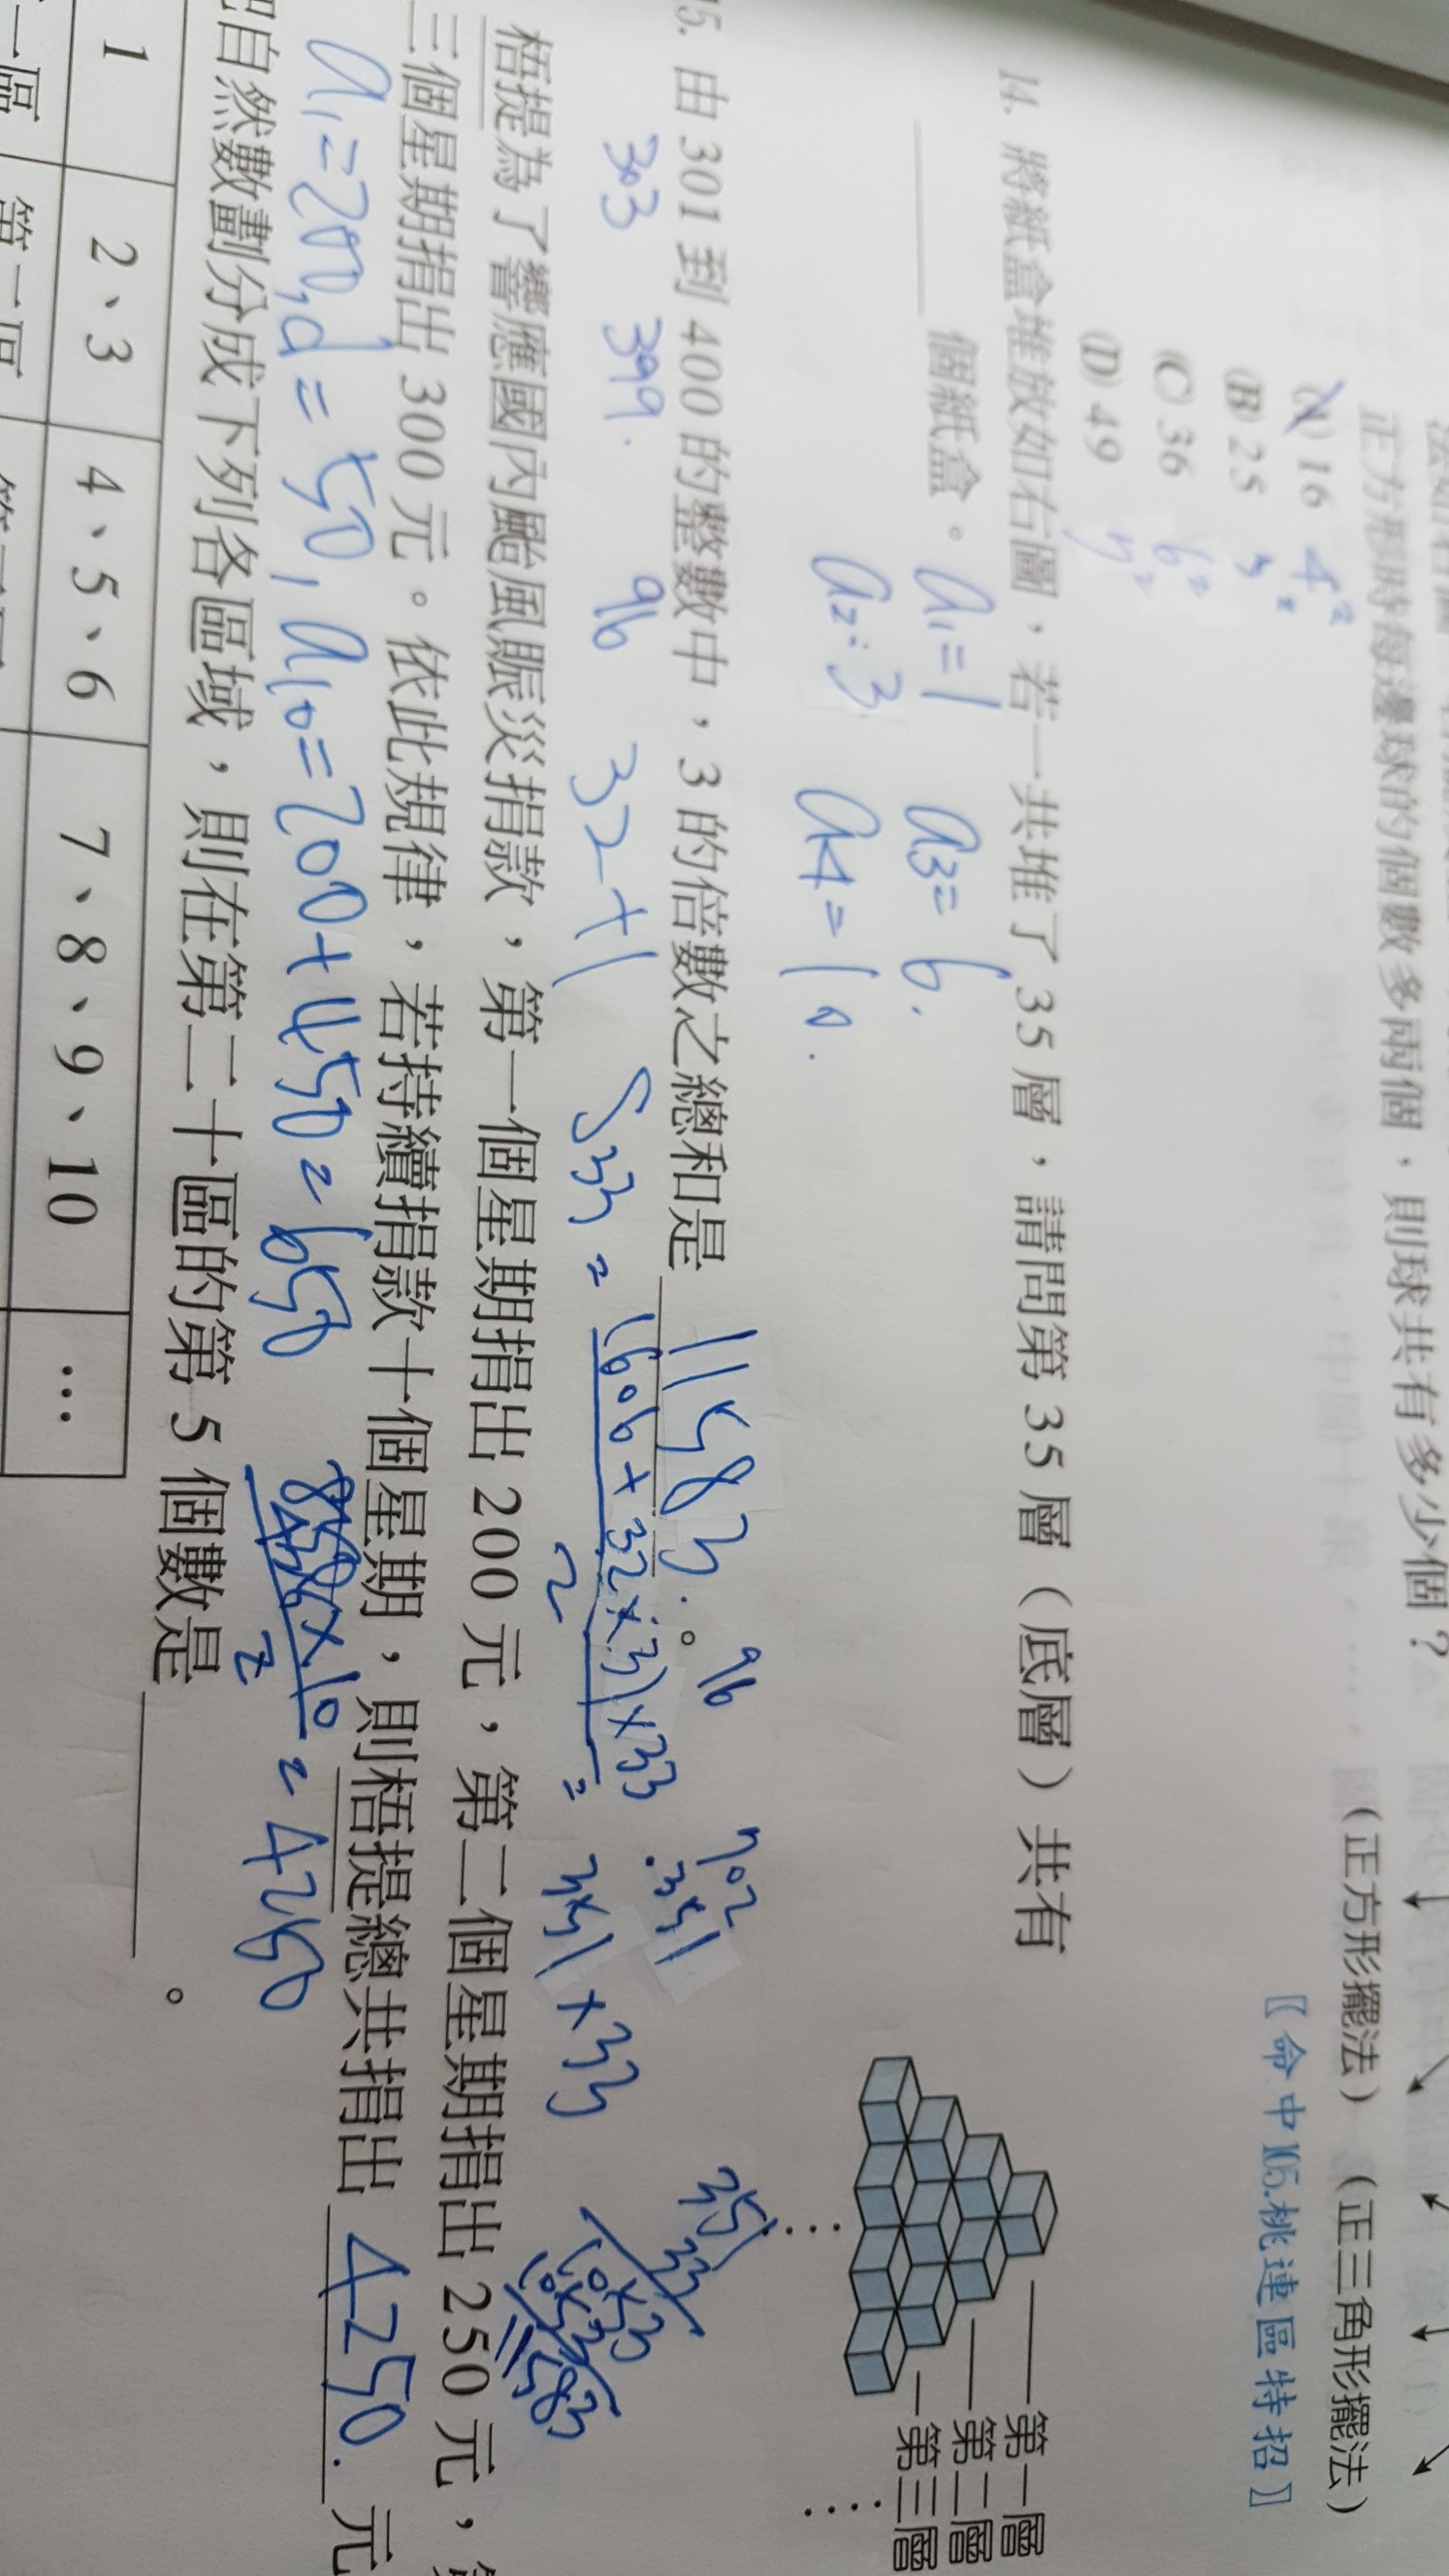 正方形時每邊球的個數多兩個，則球共有多少個？
(A) 16 4²
(B) 25
(C) 36 6²
(D) 49
（正方形擺法）（正三角形擺法）
〖命中105.桃連區特招〗
14. 將紙盒堆放如右圖，若一共堆了 35 層，請問第 35 層（底層）共有
個紙盒。
a₁=1 a₃=6.
a₂=3. a₄=10.
第一層
第二層
第三層
5. 由 301 到 400 的整數中，3 的倍數之總和是 11583. 。
303 399. 96 32+1
S33 = (606+32×3)×33
2
= 351×33
96
702
351
351
33
1053
1053
11583
梧提為了響應國內颱風賑災捐款，第一個星期捐出 200 元，第二個星期捐出 250 元，
三個星期捐出 300 元。依此規律，若持續捐款十個星期，則梧提總共捐出 4250. 元
a₁=200, d=50, a₁₀=200+450=650
×10
2
= 4250
自然數劃分成下列各區域，則在第二十區的第 5 個數是 。
1 2、3 4、5、6 7、8、9、10 …
一區 第二區